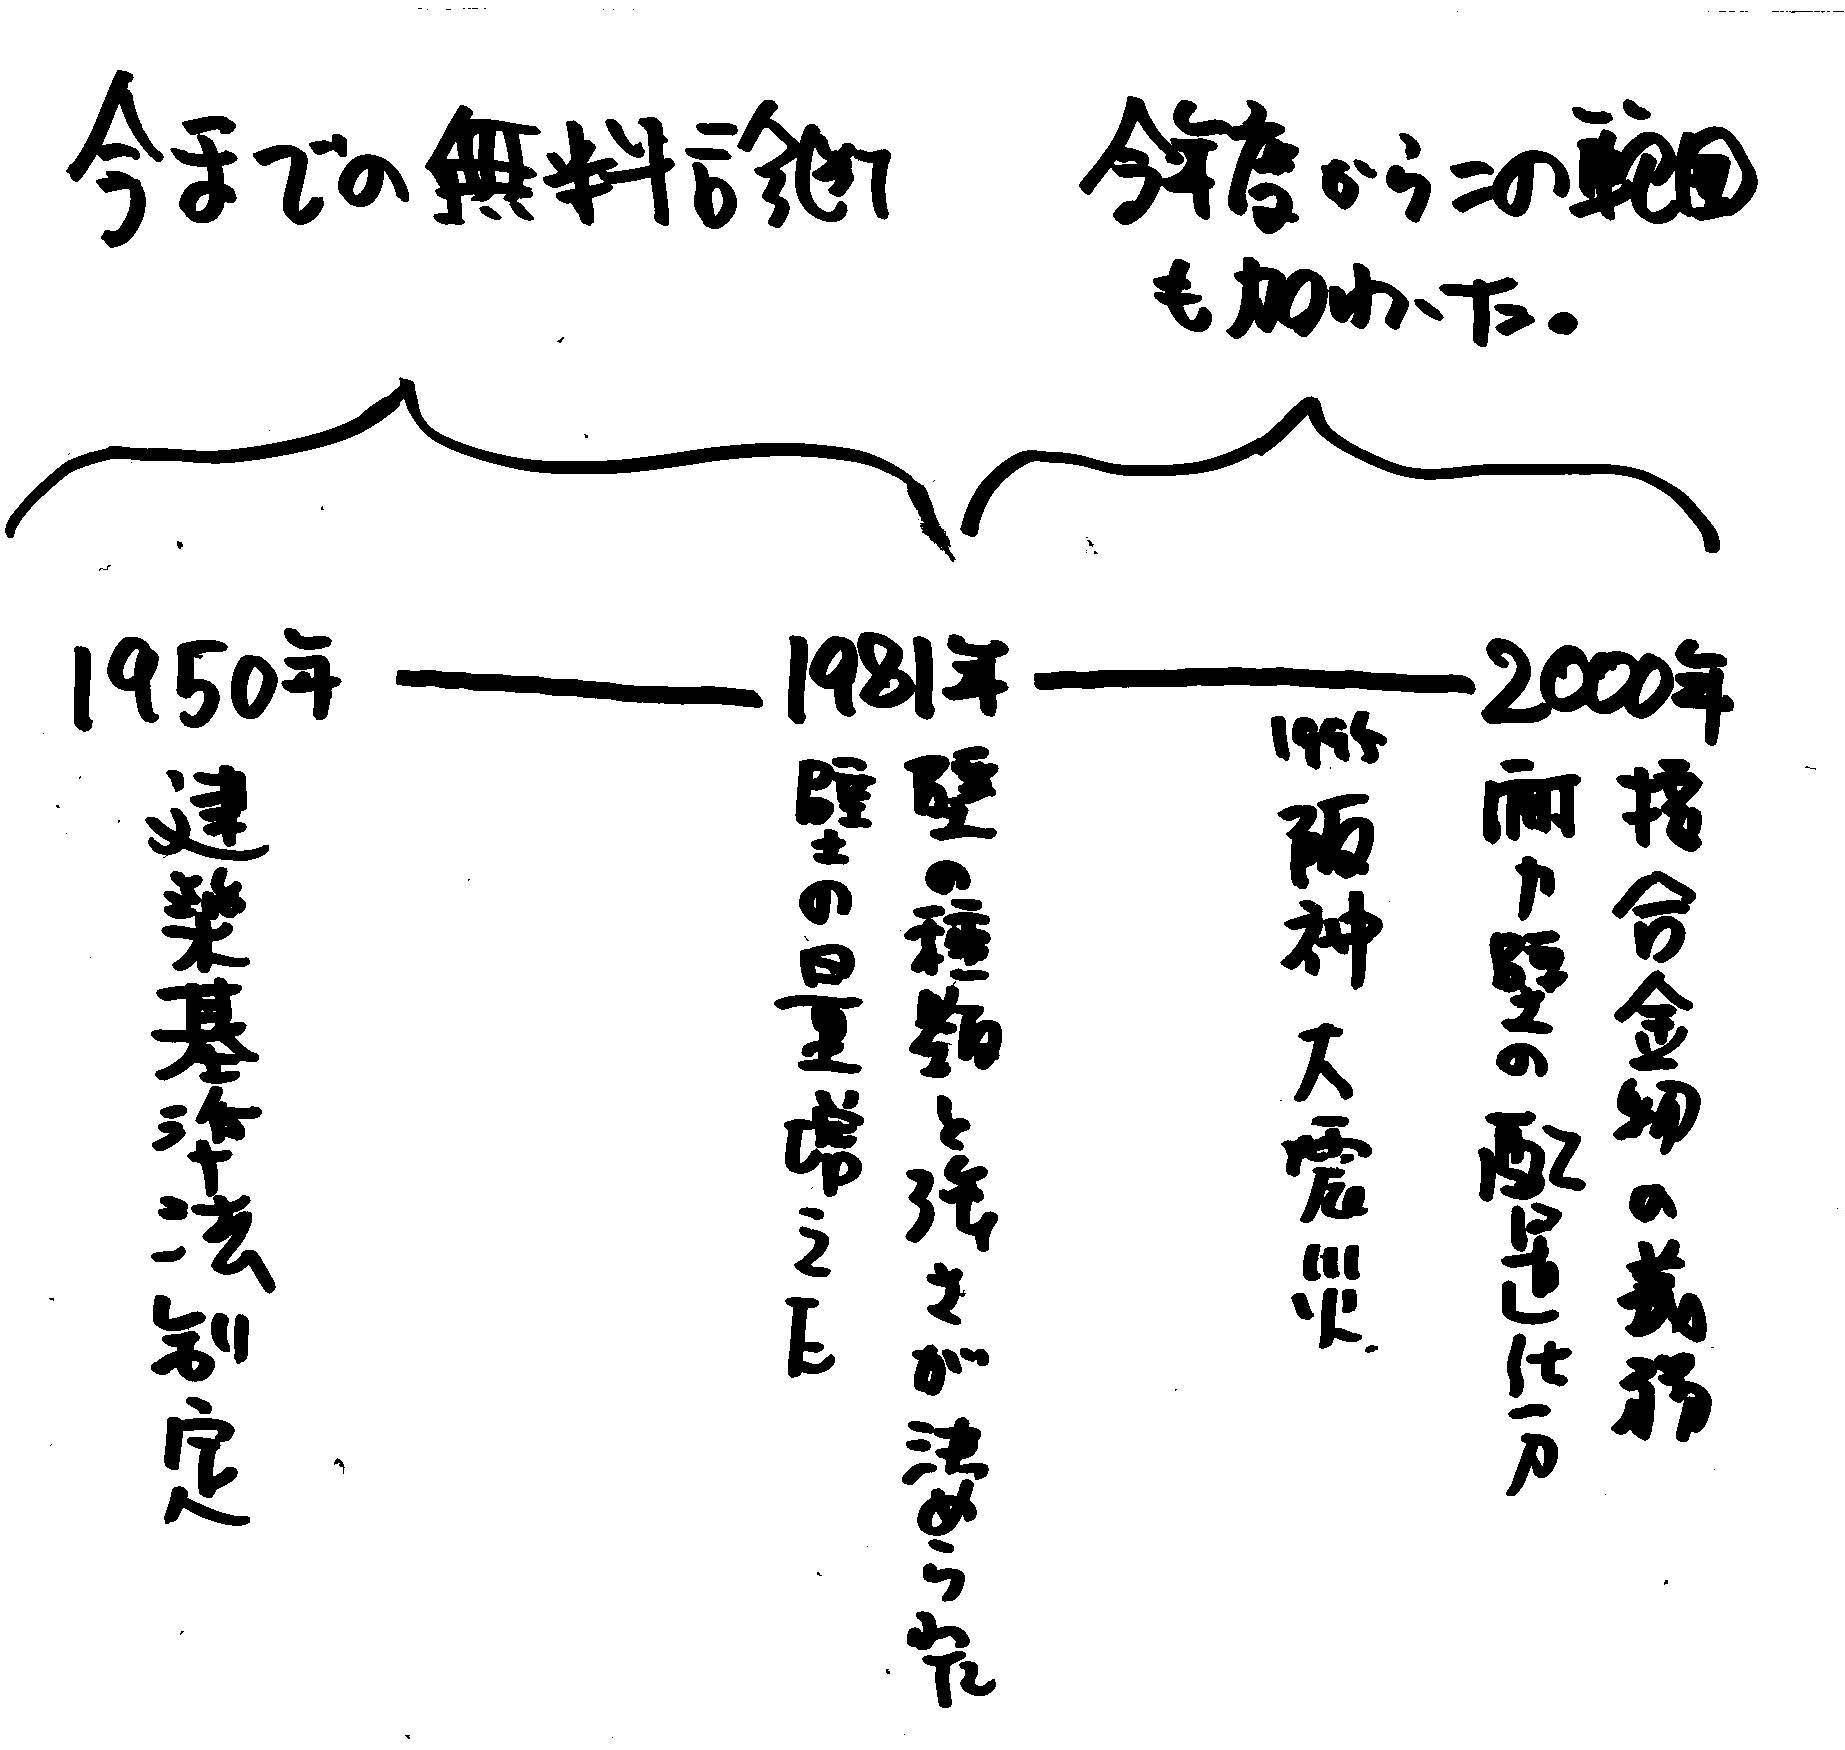 今までの無料診断
今年度からこの範囲
も加わった。
1950年
建築基準法制定
1981年
壁の種類と強さが決められた
壁の量増えた
1995
阪神大震災
2000年
接合金物の義務
耐力壁の配置仕方